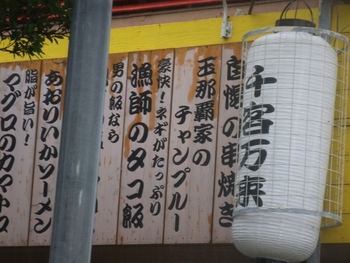 千客万来
自慢の串焼き
玉那覇家の
チャンプルー
豪快！ネギがたっぷり
漁師のタコ飯
男の飯なら
あおりいかソーメン
脂が旨い！
マグロのカマやき